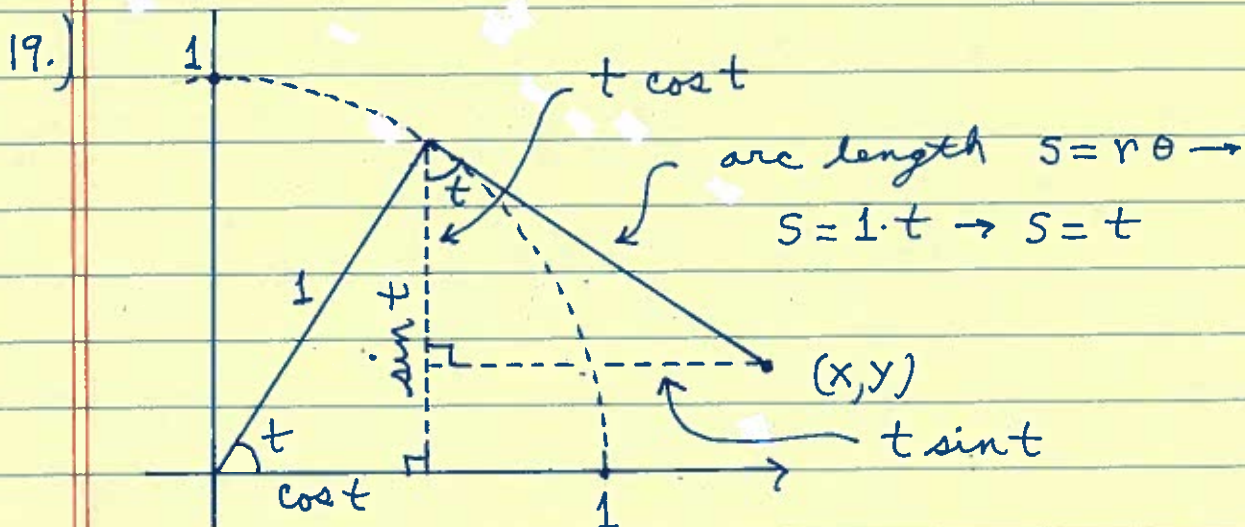 19.)
1
t cos t
arc length S = r θ →
S = 1·t → S = t
t
1
sin t
(x,y)
t
t sin t
cos t
1